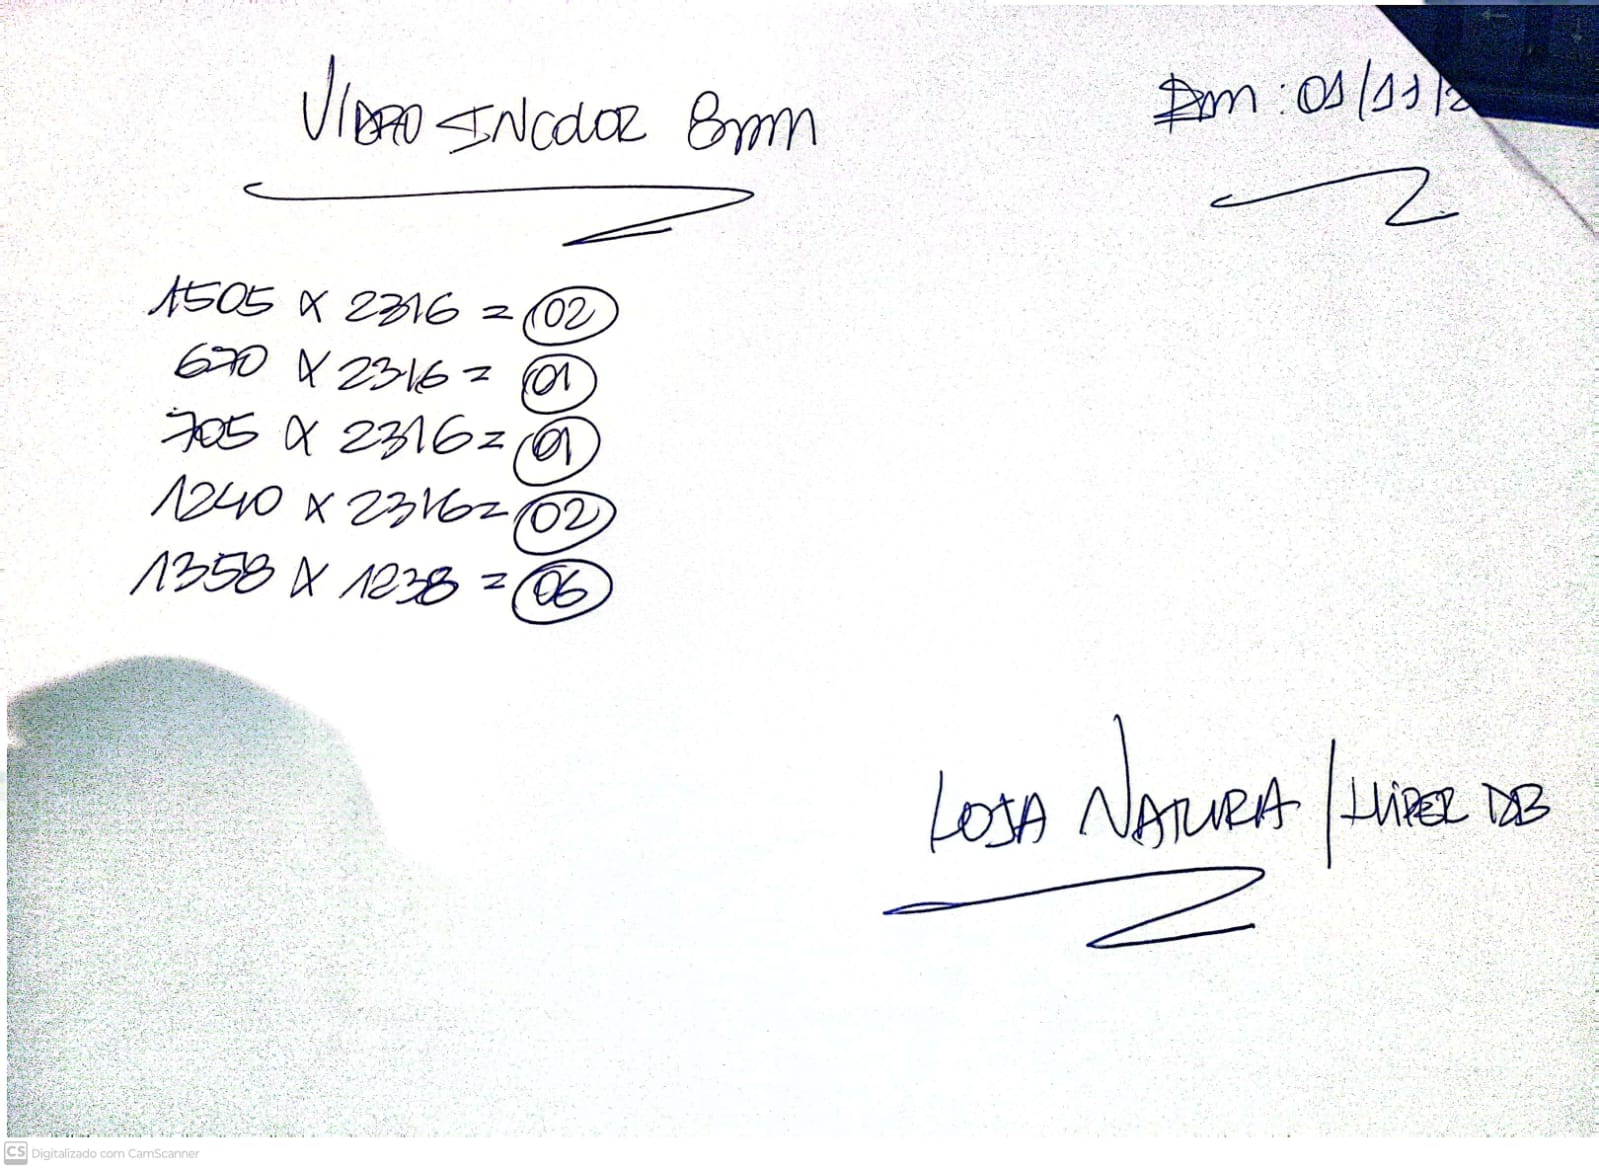 VIDRO INCOLOR 8mm
Em: 01/11/2
1505 x 2316 = 02
670 x 2316 = 01
705 x 2316 = 01
1240 x 2316 = 02
1358 x 1238 = 06
LOJA NATURA / HIPER DB
CS Digitalizado com CamScanner